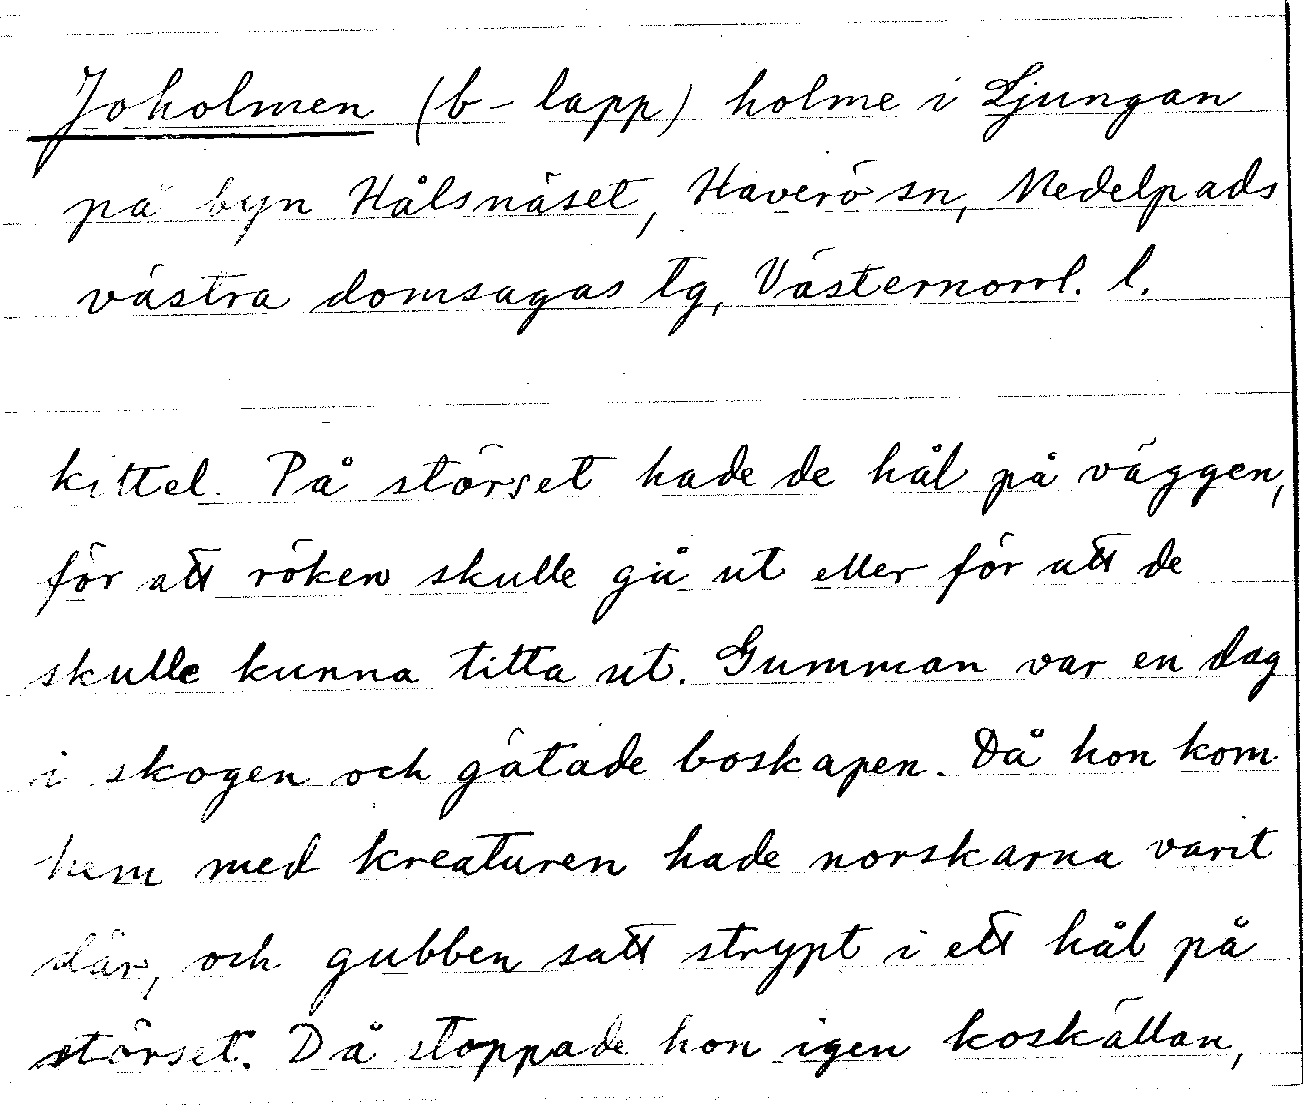 Joholmen (b-lapp) holme i Ljungan
på byn Hålsnäset, Haverö sn, Medelpads
västra domsagas tg, Västernorrl. l.
kittel. På störset hade de hål på väggen,
för att röken skulle gå ut eller för att de
skulle kunna titta ut. Gumman var en dag
i skogen och gätade boskapen. Då hon kom
hem med kreaturen hade norskarna varit
där, och gubben satt strypt i ett hål på
störset. Då stoppade hon igen koskällan,